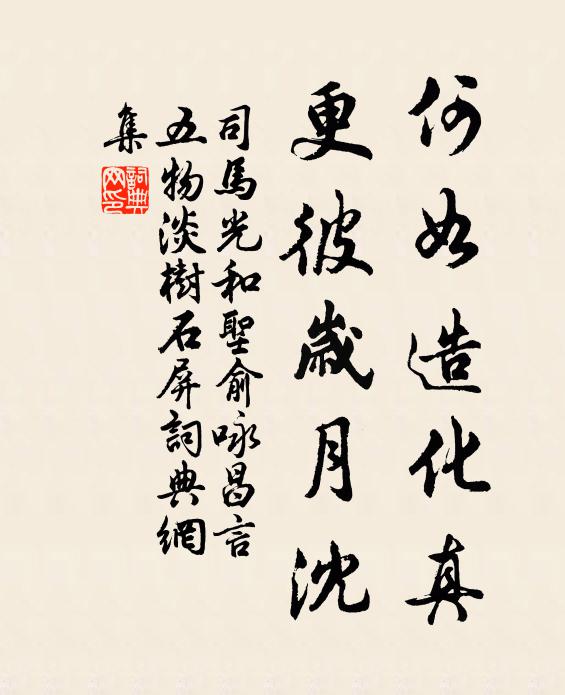 何如造化真
更彼歲月沈
司馬光和聖俞咏昌言
五物淡樹石屏詞典網
集
詞典網印